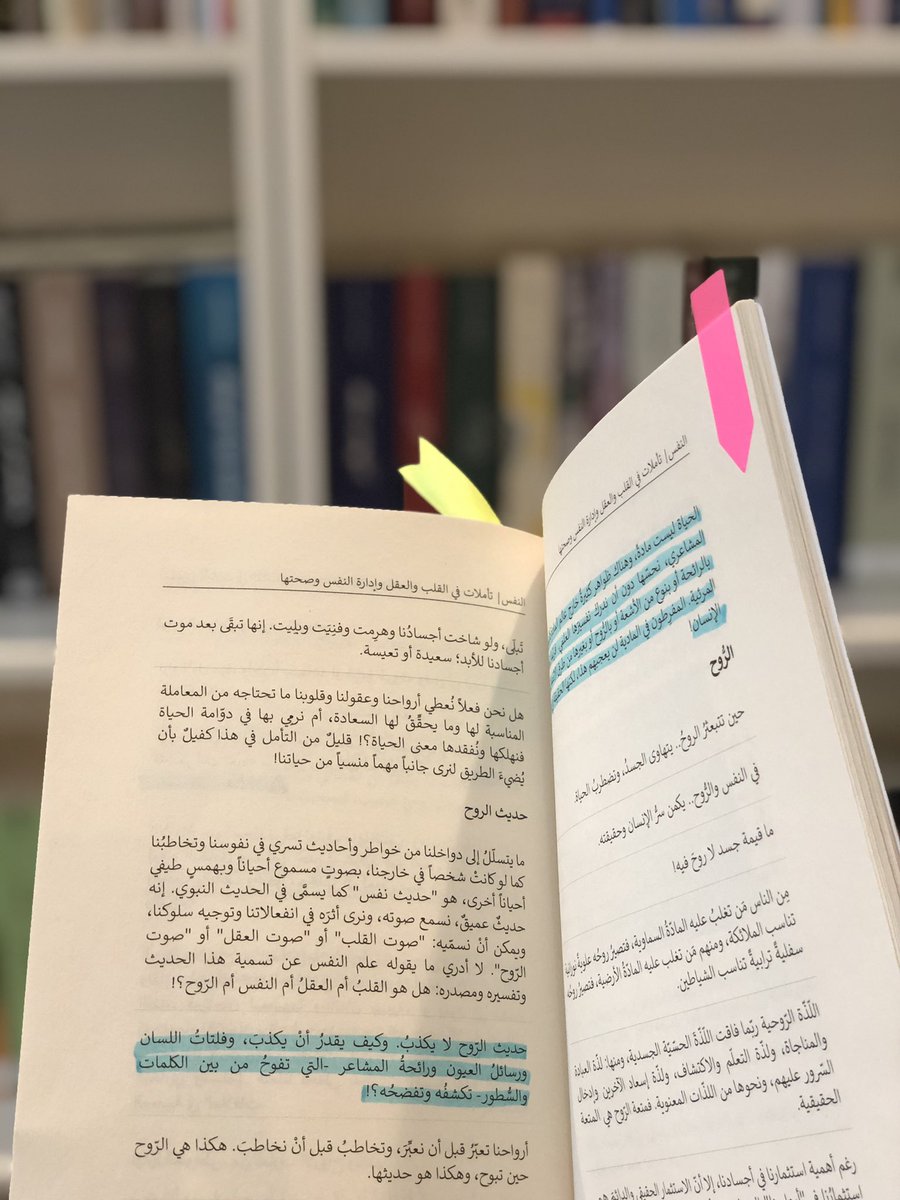 النفس | تأملات في القلب والعقل وإدارة النفس وصحتها
الحياة ليست مادة، وهناك ظواهر كثيرة خارج عالم
المشاعري، نحسّها دون أن ندرك تفسيرها العلمي
بالرائحة أو بنوع من الأشعة أو بالروح أو بغيرها من
المرئية. المفرطون في المادية لن يعجبهم هذا، لكنها
الإنسان!
الرُّوح
حين تتبعثرُ الروحُ.. يتهاوى الجسدُ، وتضطربُ الحياة.
في النفس والرُّوح.. يكمن سرُّ الإنسان وحقيقته.
ما قيمة جسد لا روحَ فيه!
مِن الناس مَن تغلبُ عليه المادّة السماوية، فتصيرُ روحُه علوية نورانية
تناسب الملائكة، ومنهم مَن تغلب عليه المادّة الأرضية، فتصيرُ روحُه
سفليةً ترابيةً تناسب الشياطين.
اللّذّة الرّوحية ربّما فاقت اللّذّة الحسّيّة الجسدية، ومنها: لذّة العبادة
والمناجاة، ولذّة التعلّم والاكتشاف، ولذّة إسعاد الآخرين وإدخال
السّرور عليهم، ونحوها من اللذّات المعنوية. فمتعة الرّوح هي المتعة
الحقيقية.
رغم أهمية استثمارنا في أجسادنا، إلا أنّ الاستثمار الحقيقي والدائم هو
النفس | تأملات في القلب والعقل وإدارة النفس وصحتها
تَبلَى، ولو شاخت أجسادُنا وهرِمت وفنِيَت وبلِيت. إنها تبقَى بعد موت
أجسادنا للأبد؛ سعيدة أو تعيسة.
هل نحن فعلاً نُعطي أرواحنا وعقولنا وقلوبنا ما تحتاجه من المعاملة
المناسبة لها وما يحقّقُ لها السعادة، أم نرمي بها في دوّامة الحياة
فنهلكها ونُفقدها معنى الحياة؟! قليلٌ من التأمل في هذا كفيلٌ بأن
يُضيءَ الطريق لنرى جانباً مهماً منسياً من حياتنا!
حديث الروح
ما يتسلّلُ إلى دواخلنا من خواطر وأحاديث تسري في نفوسنا وتخاطبُنا
كما لو كانتْ شخصاً في خارجنا، بصوتٍ مسموع أحياناً وبهمسٍ طيفي
أحياناً أخرى، هو "حديث نفس" كما يسمَّى في الحديث النبوي. إنه
حديثٌ عميقٌ، نسمع صوته، ونرى أثرَه في انفعالاتنا وتوجيه سلوكنا،
ويمكن أنْ نسمّيه: "صوت القلب" أو "صوت العقل" أو "صوت
الرّوح". لا أدري ما يقوله علم النفس عن تسمية هذا الحديث
وتفسيره ومصدره: هل هو القلبُ أم العقلُ أم النفس أم الرّوح؟!
حديث الرّوح لا يكذبُ. وكيف يقدرُ أنْ يكذبَ، وفلتاتُ اللسان
ورسائلُ العيون ورائحةُ المشاعر -التي تفوحُ من بين الكلمات
والسُّطور- تكشفُه وتفضحُه؟!
أرواحنا تعبّرُ قبل أن نعبِّرَ، وتخاطبُ قبل أنْ نخاطبَ. هكذا هي الرّوح
حين تبوح، وهكذا هو حديثها.